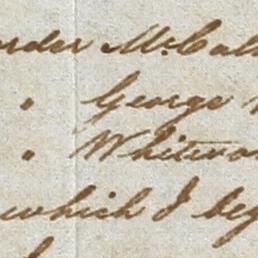 order McCal
" George
" Whitewo
which I beg